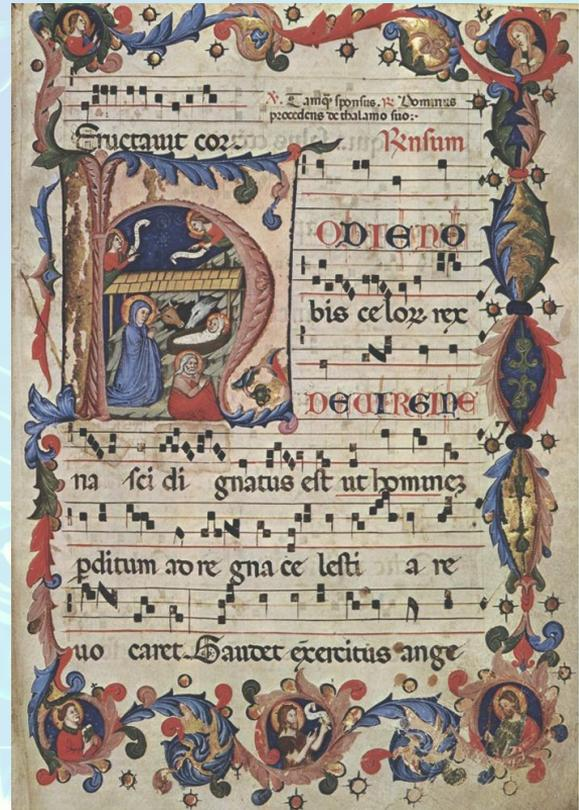 ℣. Tamq̃ sponsus. ℞. Dominus
procedens de thalamo suo:·
Eructauit cor. Rñsum
HODIE NO
bis celoꝝ rex
DE UIRGINE
na sci di gnatus est ut hominez
ꝑditum ad re gna ce lesti a re
uo caret. Gaudet exercitus ange